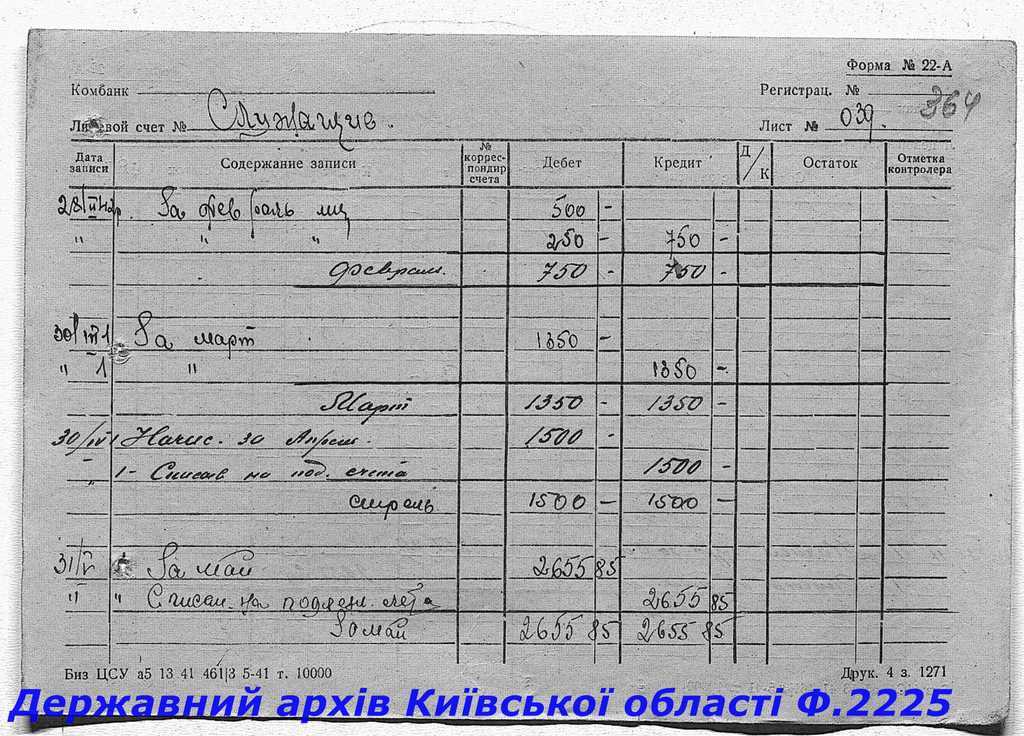 Форма № 22-А
Комбанк
Регистрац. №
364
Лицевой счет № Служащие.
Лист № 039.
Дата записи Содержание записи № коррес-пондир счета Дебет Кредит Д/К Остаток Отметка контролера
28/II 42р. За февраль м-ц 500 -
" " " 250 - 750 -
Феврал. 750 - 750 -
30/III 1 За март 1350 -
" 1 " 1350 -
Март 1350 - 1350 -
30/IV 1 Начис. за Апрель. 1500 -
" 1 - Списав на под. счета 1500 -
1500 - 1500 -
31/V За май 2655 85
" " Списан. на подлеж. счета 2655 85
За май 2655 85 2655 85
Биз ЦСУ а5 13 41 461|3 5-41 т. 10000
Друк. 4 з. 1271
Державний архів Київської області Ф.2225